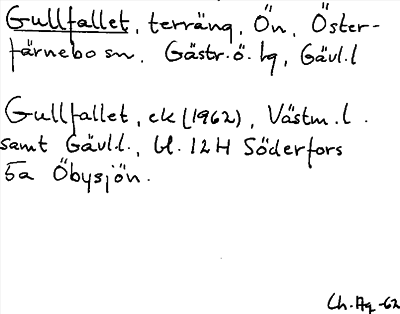 Gullfallet, terräng, Ön, Öster-
färnebo sn, Gästr.ö. tg, Gävl.l
Gullfallet, ek (1962), Västm.l.
samt Gävl.l., bl. 12H Söderfors
5a Öbysjön.
Ch. Ag -62